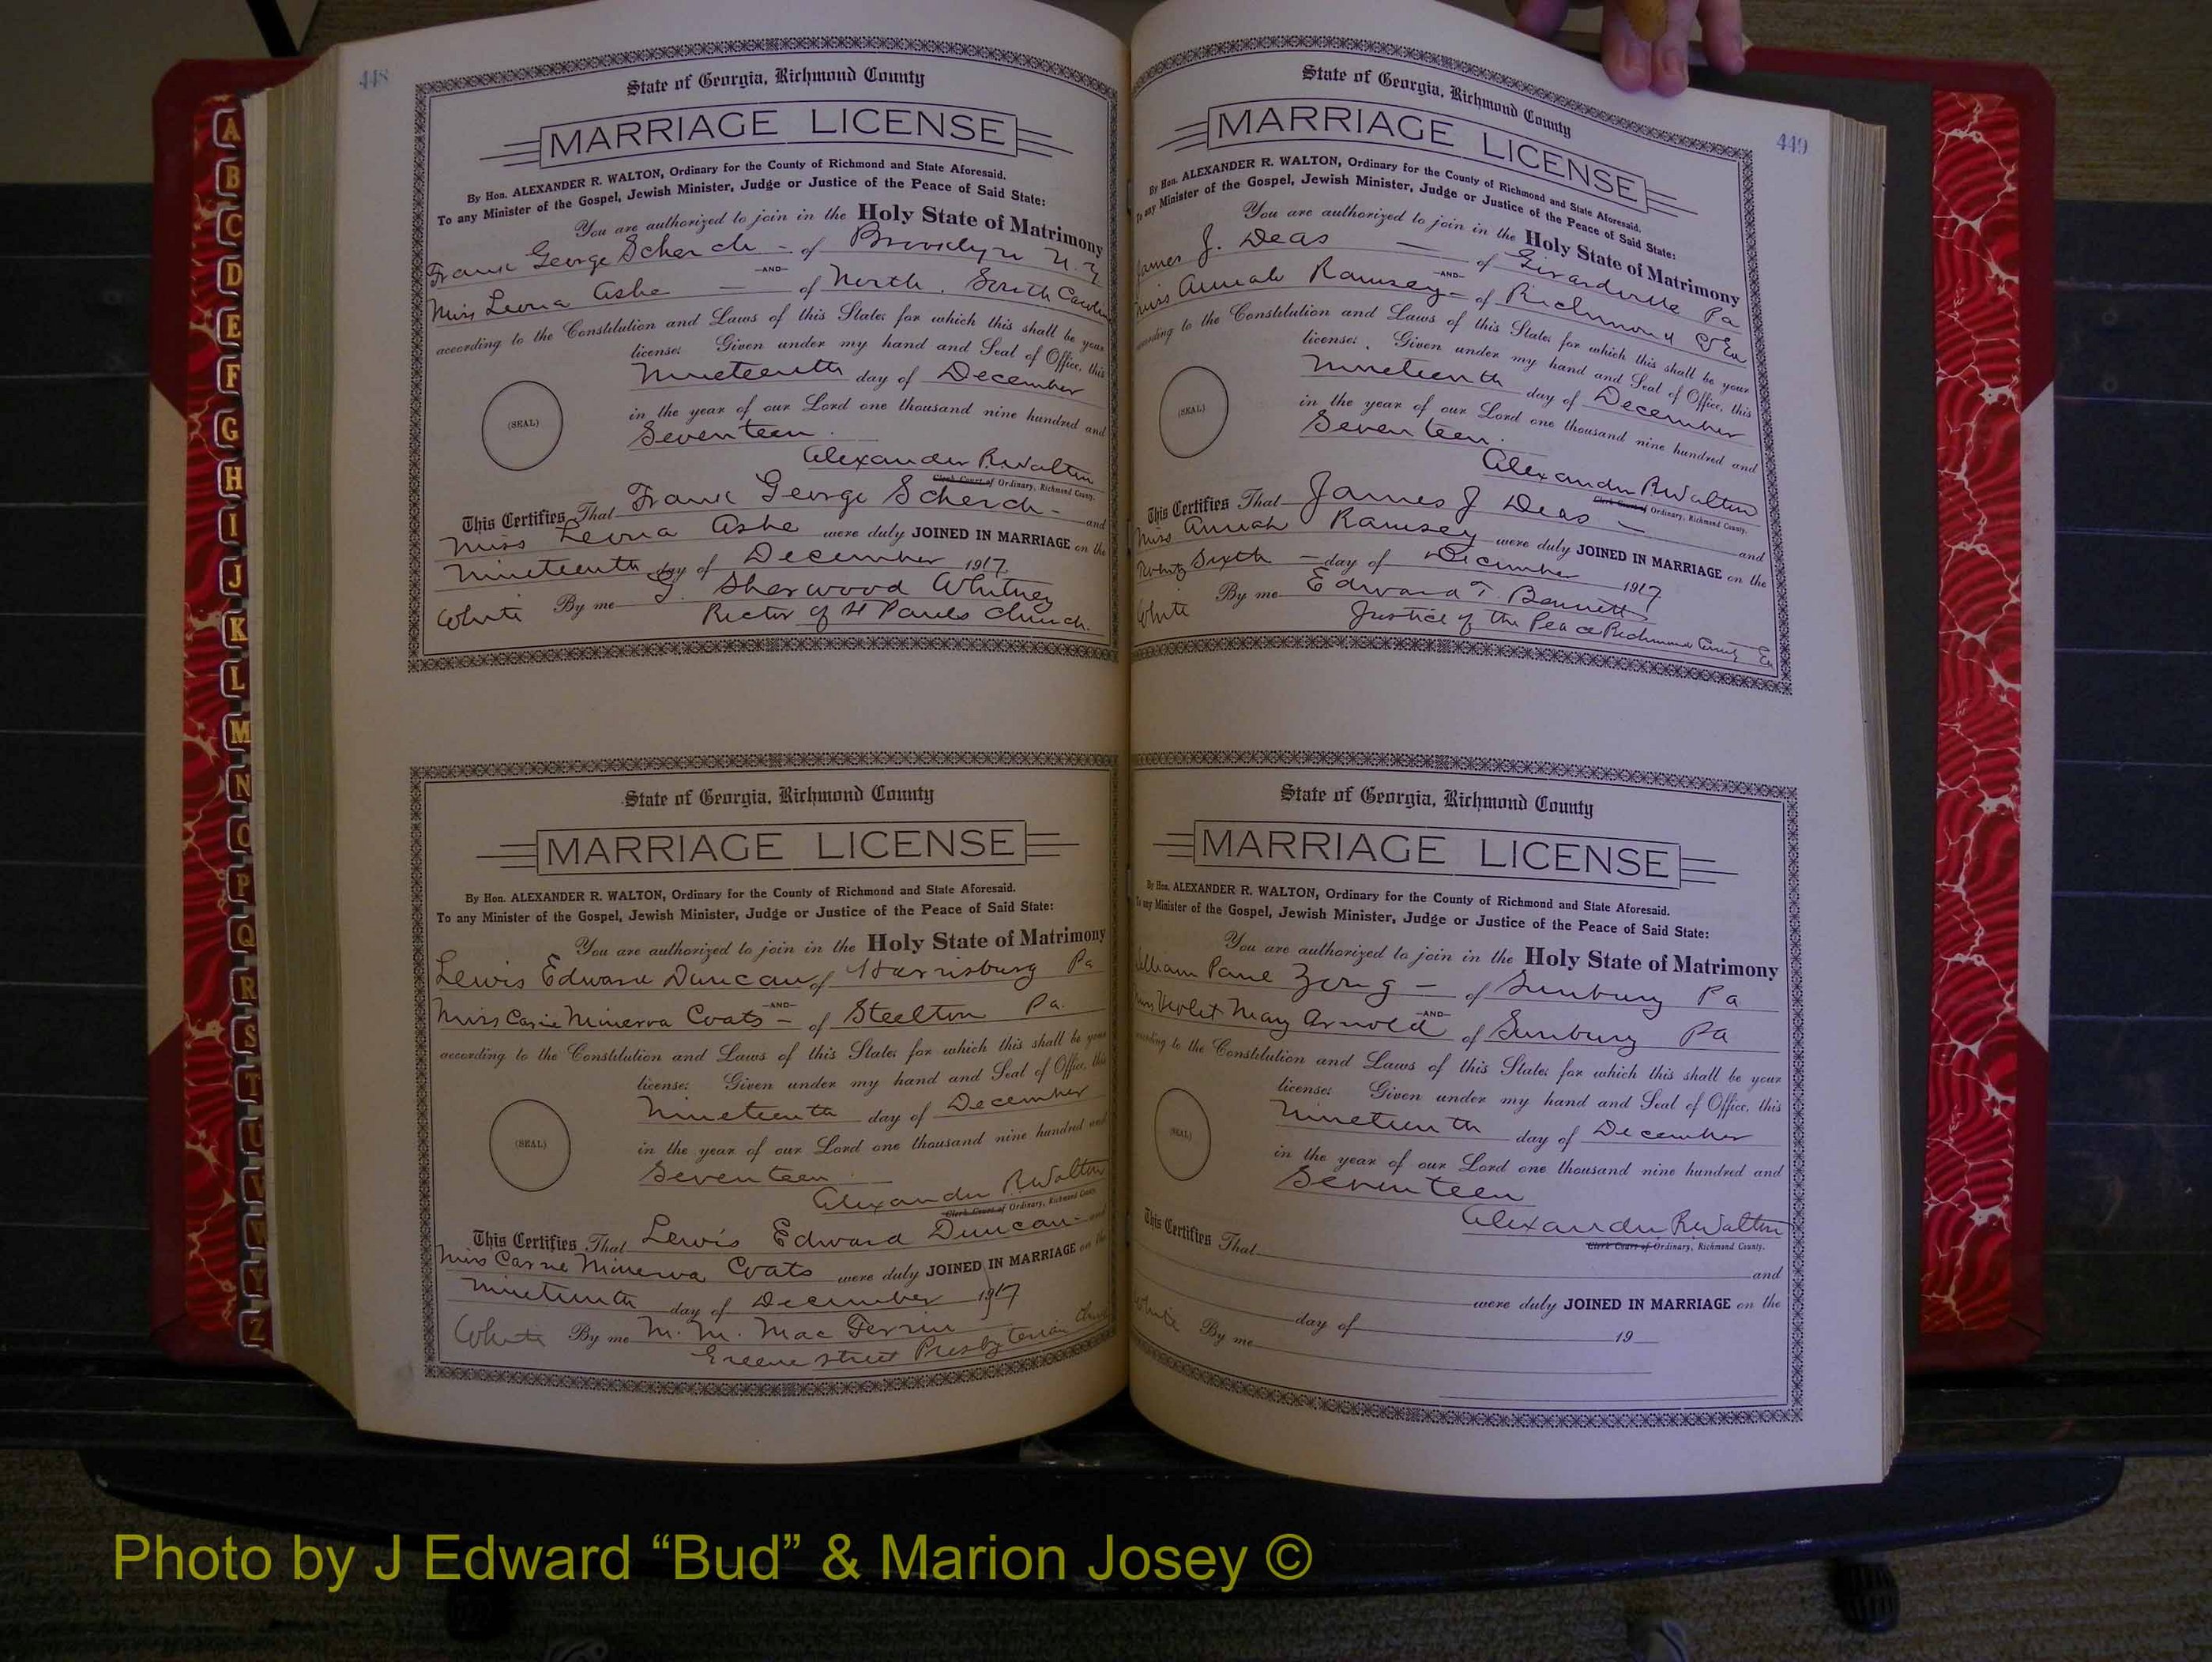 448
State of Georgia, Richmond County
MARRIAGE LICENSE
By Hon. ALEXANDER R. WALTON, Ordinary for the County of Richmond and State Aforesaid.
To any Minister of the Gospel, Jewish Minister, Judge or Justice of the Peace of Said State:
You are authorized to join in the Holy State of Matrimony
Frank George Scherch - of Brooklyn N.Y
AND
Miss Leona Ashe - of North, South Carolin
according to the Constitution and Laws of this State; for which this shall be your
license: Given under my hand and Seal of Office, this
Nineteenth day of December
in the year of our Lord one thousand nine hundred and
(SEAL)
Seventeen.
Alexander R. Walton
Clerk Court of Ordinary, Richmond County.
This Certifies That Frank George Scherch - and
Miss Leona Ashe were duly JOINED IN MARRIAGE on the
Nineteenth day of December 1917
White By me G. Sherwood Whitney
Rector of St Pauls Church.
State of Georgia, Richmond County
MARRIAGE LICENSE
By Hon. ALEXANDER R. WALTON, Ordinary for the County of Richmond and State Aforesaid.
To any Minister of the Gospel, Jewish Minister, Judge or Justice of the Peace of Said State:
You are authorized to join in the Holy State of Matrimony
Lewis Edward Duncan of Harrisburg Pa
AND
Miss Carrie Minerva Coats - of Steelton Pa.
according to the Constitution and Laws of this State; for which this shall be your
license: Given under my hand and Seal of Office, this
Nineteenth day of December
in the year of our Lord one thousand nine hundred and
(SEAL)
Seventeen
Alexander R. Walton
Clerk Court of Ordinary, Richmond County.
This Certifies That Lewis Edward Duncan - and
Miss Carrie Minerva Coats were duly JOINED IN MARRIAGE on the
Nineteenth day of December 1917
White By me M. M. Mac Ferrin
Greene Street Presbyterian
449
State of Georgia, Richmond County
MARRIAGE LICENSE
By Hon. ALEXANDER R. WALTON, Ordinary for the County of Richmond and State Aforesaid.
To any Minister of the Gospel, Jewish Minister, Judge or Justice of the Peace of Said State:
You are authorized to join in the Holy State of Matrimony
James J. Deas - of Girardville Pa
AND
Miss Annah Ramsey - of Richmond
according to the Constitution and Laws of this State; for which this shall be your
license: Given under my hand and Seal of Office, this
Nineteenth day of December
in the year of our Lord one thousand nine hundred and
(SEAL)
Seventeen.
Alexander R. Walton
Clerk Court of Ordinary, Richmond County.
This Certifies That James J Deas - and
Miss Annah Ramsey were duly JOINED IN MARRIAGE on the
Twenty Sixth - day of December 1917
White By me Edward T. Bennett
Justice of the Peace Richmond County
State of Georgia, Richmond County
MARRIAGE LICENSE
By Hon. ALEXANDER R. WALTON, Ordinary for the County of Richmond and State Aforesaid.
To any Minister of the Gospel, Jewish Minister, Judge or Justice of the Peace of Said State:
You are authorized to join in the Holy State of Matrimony
William Paul Zong - of Sunbury Pa
AND
Miss Violet May Arnold of Sunbury Pa
according to the Constitution and Laws of this State; for which this shall be your
license: Given under my hand and Seal of Office, this
Nineteenth day of December
in the year of our Lord one thousand nine hundred and
(SEAL)
Seventeen
Alexander R. Walton
Clerk Court of Ordinary, Richmond County.
This Certifies That
and
were duly JOINED IN MARRIAGE on the
day of 19
White By me
A
B
C
D
E
F
G
H
I
J
K
L
M
N
O
P
Q
R
S
T
U
V
W
Y
Z
Photo by J Edward “Bud” & Marion Josey ©